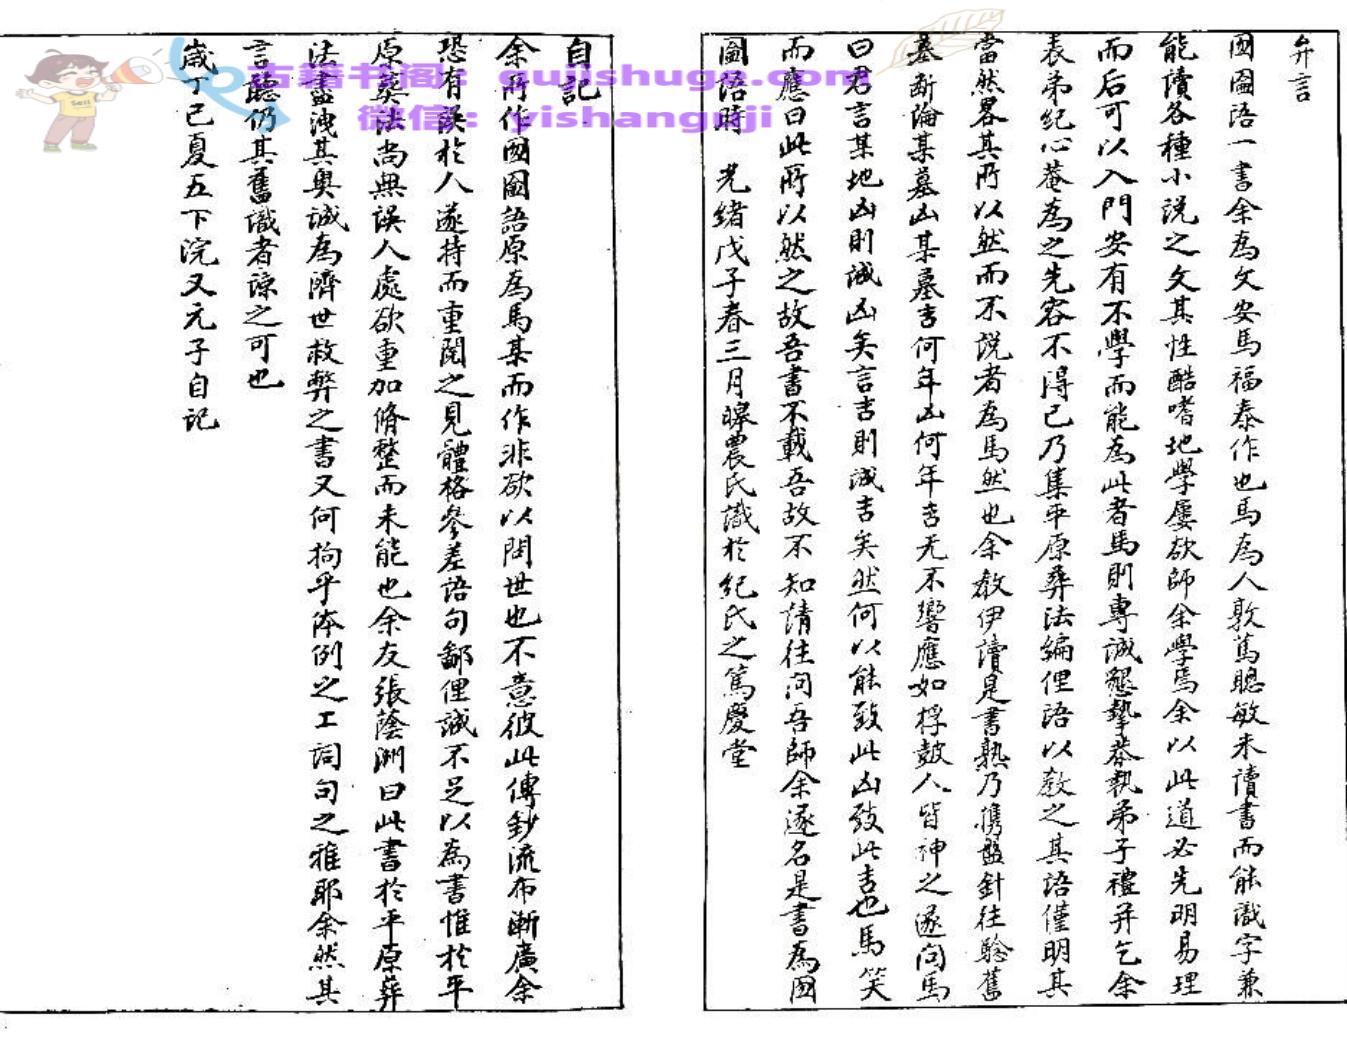 弁言
囫圇語一書余為文安馬福泰作也馬為人敦篤聰敏未讀書而能識字兼
能讀各種小説之文其性酷嗜地學屢欲師余學焉余以此道必先明易理
而后可以入門安有不學而能為此者馬則專誠懇摯恭執弟子禮并乞余
表弟紀心菴為之先容不得已乃集平原葬法編俚語以教之其語僅明其
當然畧其所以然而不説者為馬然也余教伊讀是書熟乃携盤針往驗舊
墓断論某墓凶某墓吉何年凶何年吉无不響應如桴鼓人皆神之遂问馬
曰君言某地凶則诚凶矣言吉則诚吉矣然何以能致此凶致此吉也馬笑
而應曰此所以然之故吾書不載吾故不知請往问吾師余遂名是書為囫
圇語時 光緒戊子春三月皥農氏識於紀氏之篤慶堂
自記
余所作囫圇語原為馬某而作非欲以問世也不意彼此傳鈔流布漸廣余
恐有誤於人遂持而重閱之見體格參差語句鄙俚誠不足以為書惟於平
原葬法尚無误人處欲重加脩整而未能也余友張蔭洲曰此書於平原葬
法盡洩其奥誠為濟世救弊之書又何拘乎体例之工詞句之雅耶余然其
言聽仍其舊識者諒之可也
歲丁己夏五下浣又元子自记
古籍书阁：gujishuge.com
微信：yishanguji
Sell